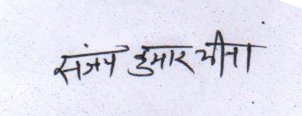 संजय कुमार मीना